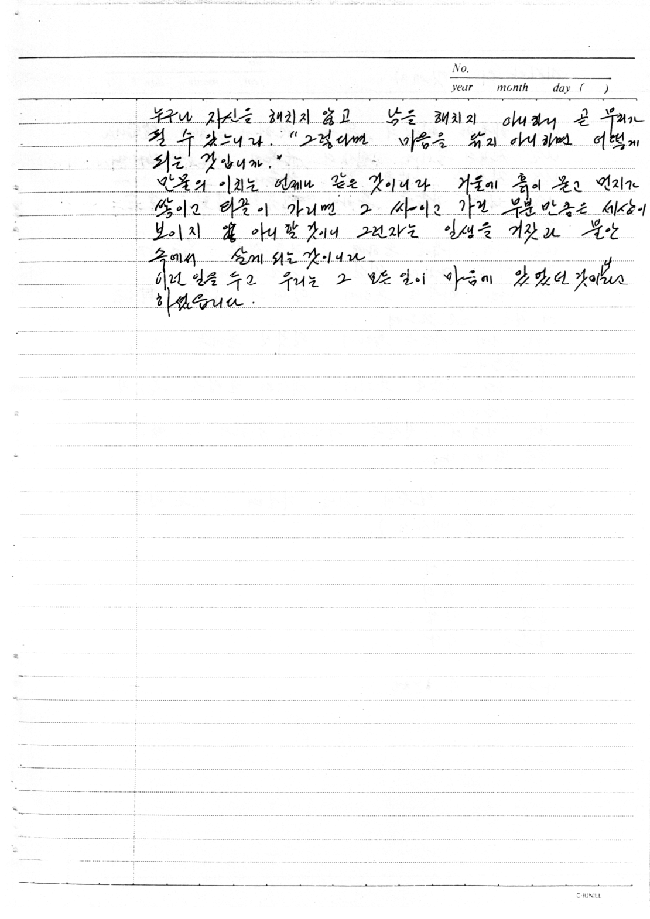 No.
year month day ( )
누구나 자신을 해치지 않고 남을 해치지 아니하니 곧 우리가
될 수 있느니라. "그렇다면 마음을 닦지 아니하면 어떻게
되는 것입니까."
만물의 이치는 언제나 같은 것이니라 거울에 흙이 묻고 먼지가
쌓이고 티끌이 가리면 그 싸이고 가린 부분만큼은 세상이
보이지 아니 할 것이니 그런자는 일생을 거짓과 불안
속에서 살게 되는 것이니라
이런 일을 두고 우리는 그 모든 일이 마음에 있었던
하였읍니다.